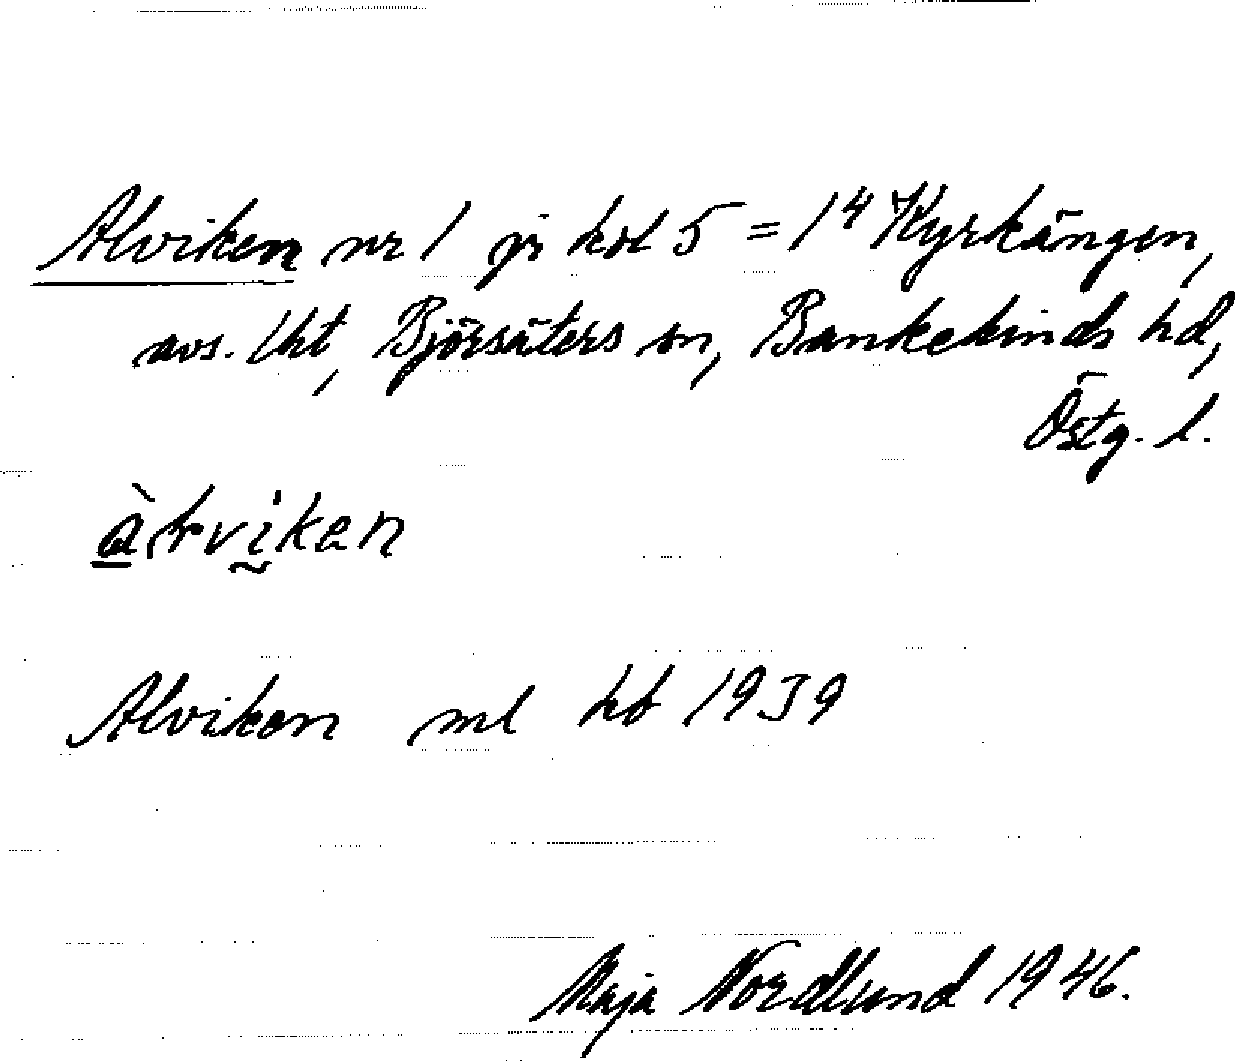 Alviken nr 1 på kbl 5 = 1⁴ Kyrkängen,
avs. lht, Björsäters sn, Bankekinds hd,
Östg. l.
àlviken
Alviken ml hb 1939
Maja Nordlund 1946.